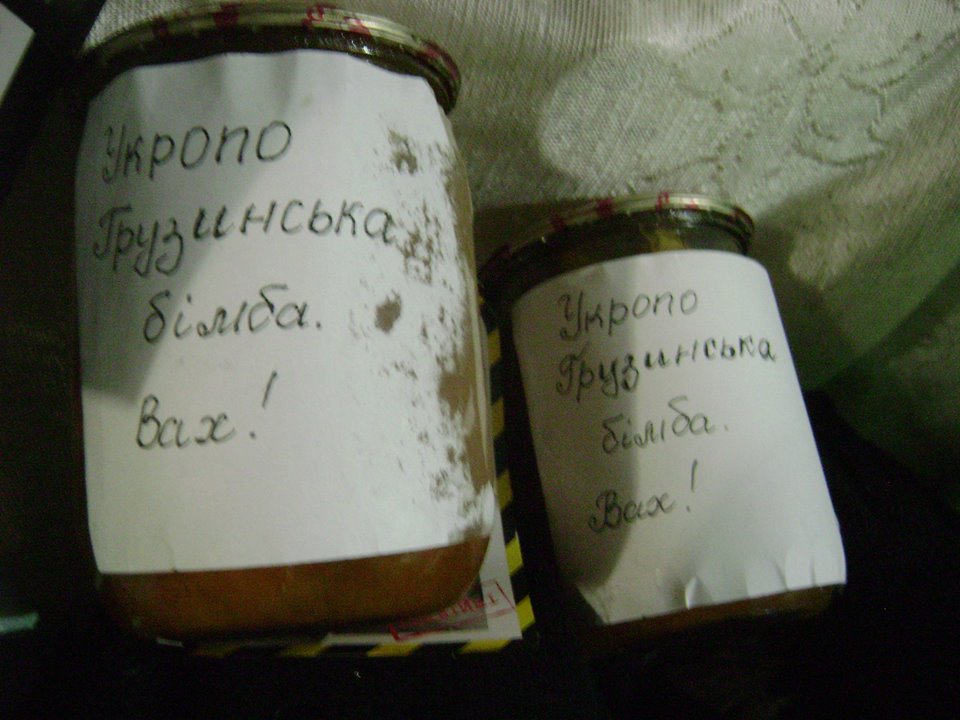 Укропо
Грузинська
бімба.
Вах!
Укропо
Грузинська
бімба.
Вах!